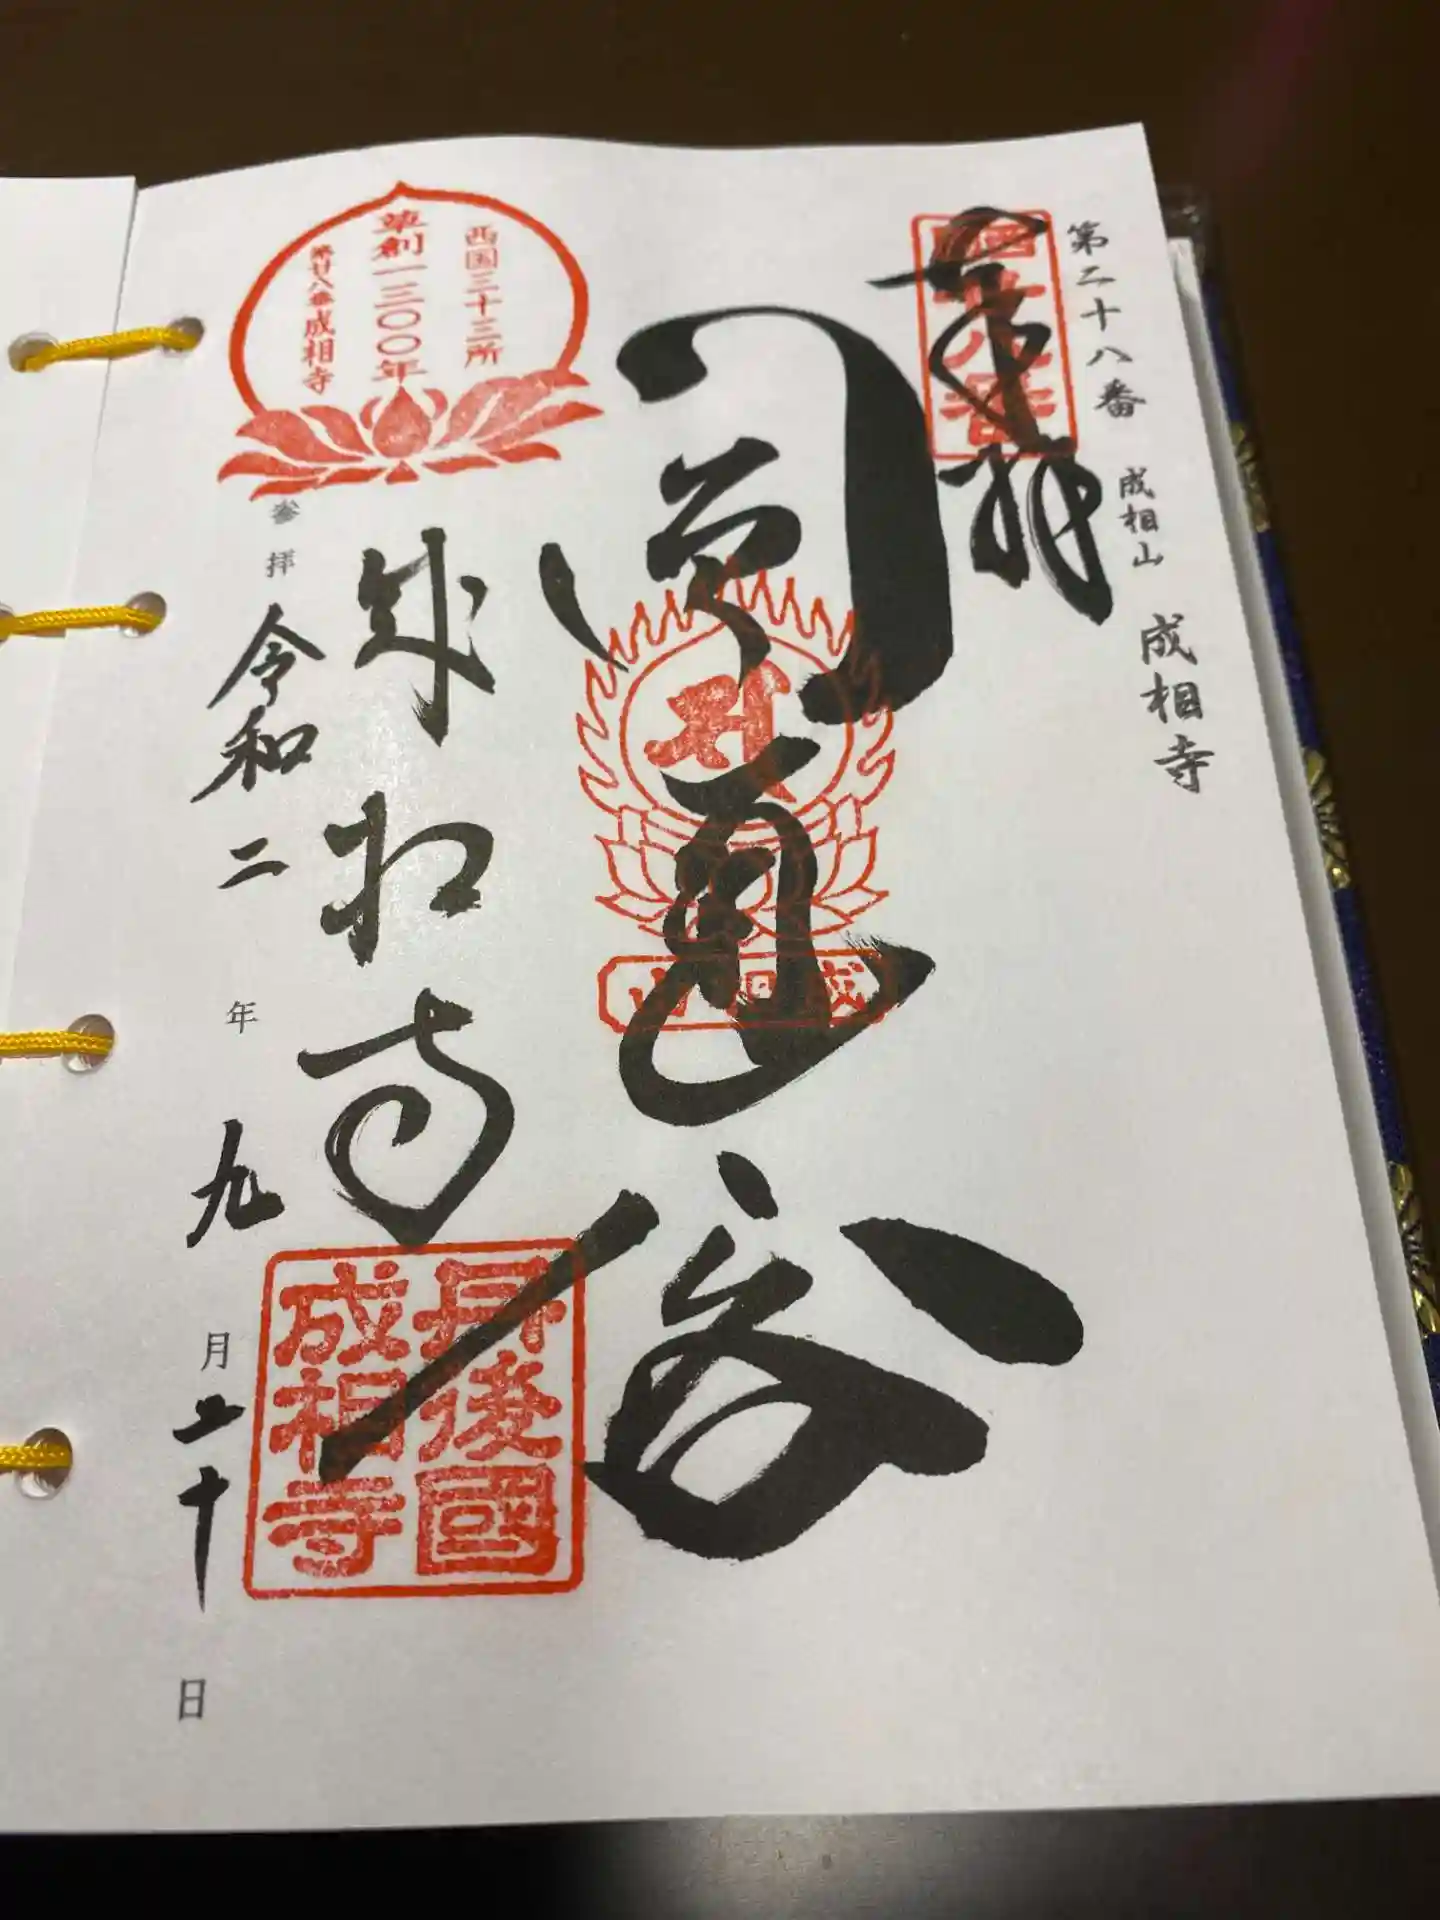 第二十八番 成相山 成相寺
奉拝
西国廿八番
圓通殿
成相山
成相寺
西国三十三所
草創一三〇〇年
第廿八番成相寺
丹後國
成相寺
参拝 令和二年九月二十日